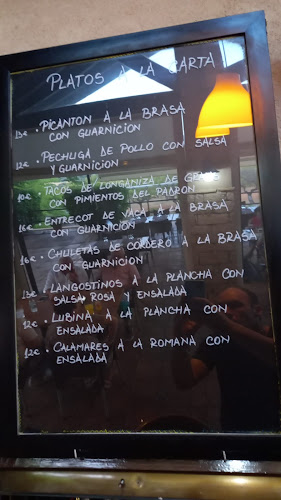 PLATOS A LA CARTA
13€ • PICANTON A LA BRASA
CON GUARNICION
12€ • PECHUGA DE POLLO CON SALSA
Y GUARNICION
10€ • TACOS DE LONGANIZA DE
CON PIMIENTOS DEL PADRON
16€ • ENTRECOT DE VACA A LA BRASA
CON GUARNICION
16€ • CHULETAS DE CORDERO A LA BRASA
CON GUARNICION
13€ • LANGOSTINOS A LA PLANCHA CON
SALSA ROSA Y ENSALADA
12€ • LUBINA A LA PLANCHA CON
ENSALADA
12€ • CALAMARES A LA ROMANA CON
ENSALADA